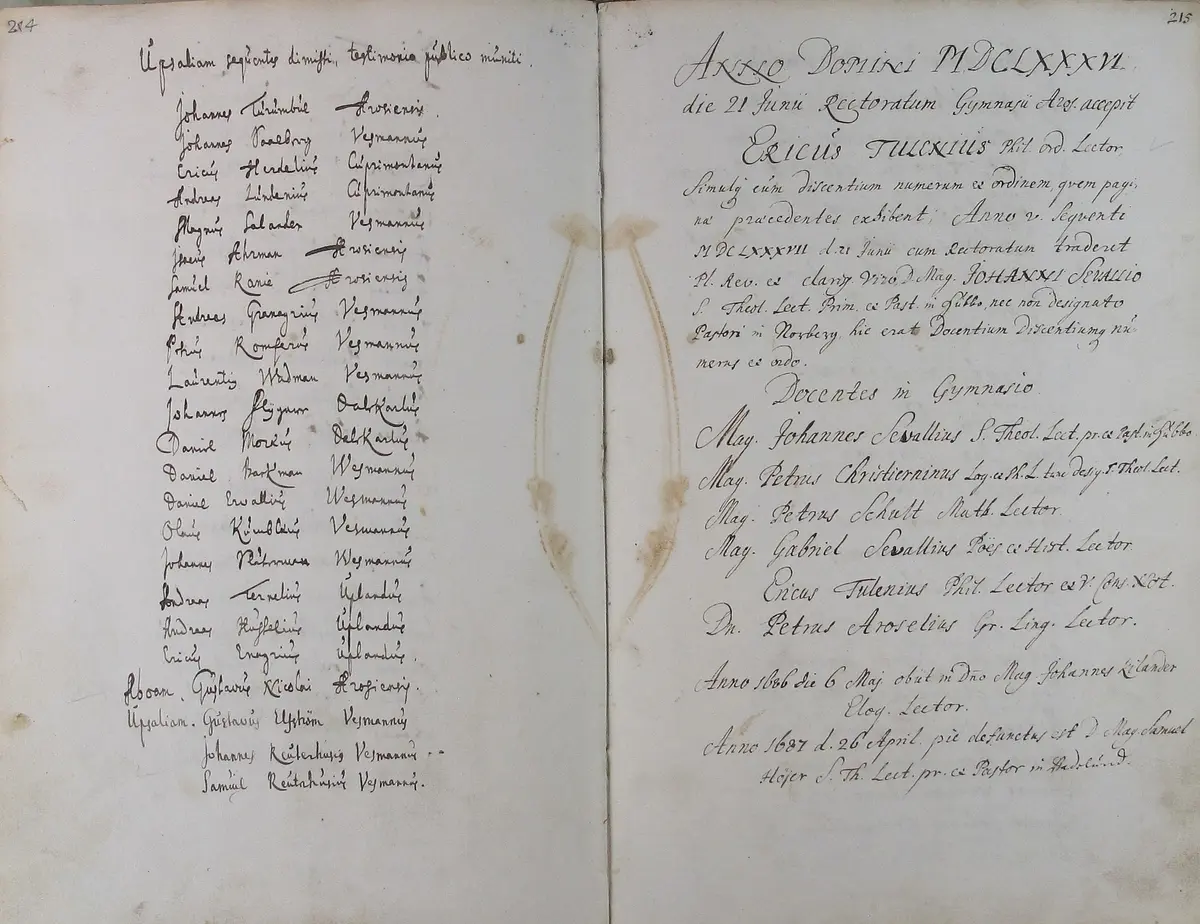 214
Upsaliam seqûentes dimissi, testimonio pûblico mûniti.
Johannes Tûrûmbûl Arosiensis.
Johannes Saalborg Vesmannûs
Ericûs Herdelius Cûprimontanûs
Andreas Lûndenius Cûprimontanûs
Magnûs Salander Vesmannûs
Ahrman Arosiensis
Samûel Ranie Arosiensis
Andreas Vesmannûs
Petrûs Romferûs Vesmannûs
Laûrentiûs Widman Vesmannûs
Johannes DalsKarlûs
Daniel Morûs DalsKarlûs
Daniel BarKman Wesmannûs
Daniel Ervalliûs Wesmannûs
Olaûs Vesmannûs
Johannes Wesmannûs
Andreas Terneliûs Ûplandûs
Andreas Hûsseliûs Ûplandûs
Ericûs Enagriûs Ûplandûs.
Aboam. Gûstavûs Nicolai Arosiensis.
Upsaliam. Gûstavûs Elfström Vesmannûs
Johannes Reûterhusiûs Vesmannûs
Samûel Reûterhûsiûs Vesmannûs.
215
ANNO DOMINI MDCLXXXVI
die 21 Junii Rectoratum Gymnasii Aros. accepit
ERICUS TULENIUS Phil. ord. Lector
Simulq cum discentium numerum et ordinem, qvem pagi,
næ præcedentes exhibent; Anno v. seqventi
MDCLXXXVII d. 21 Junii cum Rectoratum traderet
Pl. Rev. et clariss. Viro D. Mag. JOHANNI SEVALLIO
S. Theol. Lect. Prim. et Past. in Hûbbo nec non designato
Pastori in Norberg, hic erat Docentium Discentiumq nû-
merus et ordo.
Docentes in Gymnasio
Mag. Johannes Sevallius S. Theol. Lect. pr. et Past. in Hûbbo
Mag. Petrus Christierninus Log. et Ph. L. desig. S. Theol. Lect.
Mag. Petrus Schult Math. Lector.
Mag. Gabriel Sevallius Poës. et Hist. Lector
Ericus Tulenius Phil. Lector et V. Cons. Not.
Dn. Petrus Aroselius Gr. Ling. Lector.
Anno 1686 die 6 Maj obiit in Dno Mag. Johannes Kilander
Eloq. Lector.
Anno 1687 d. 26 April. pie defunctus est D. Mag. Samuel
Höjer S. Th. Lect. pr. et Pastor in